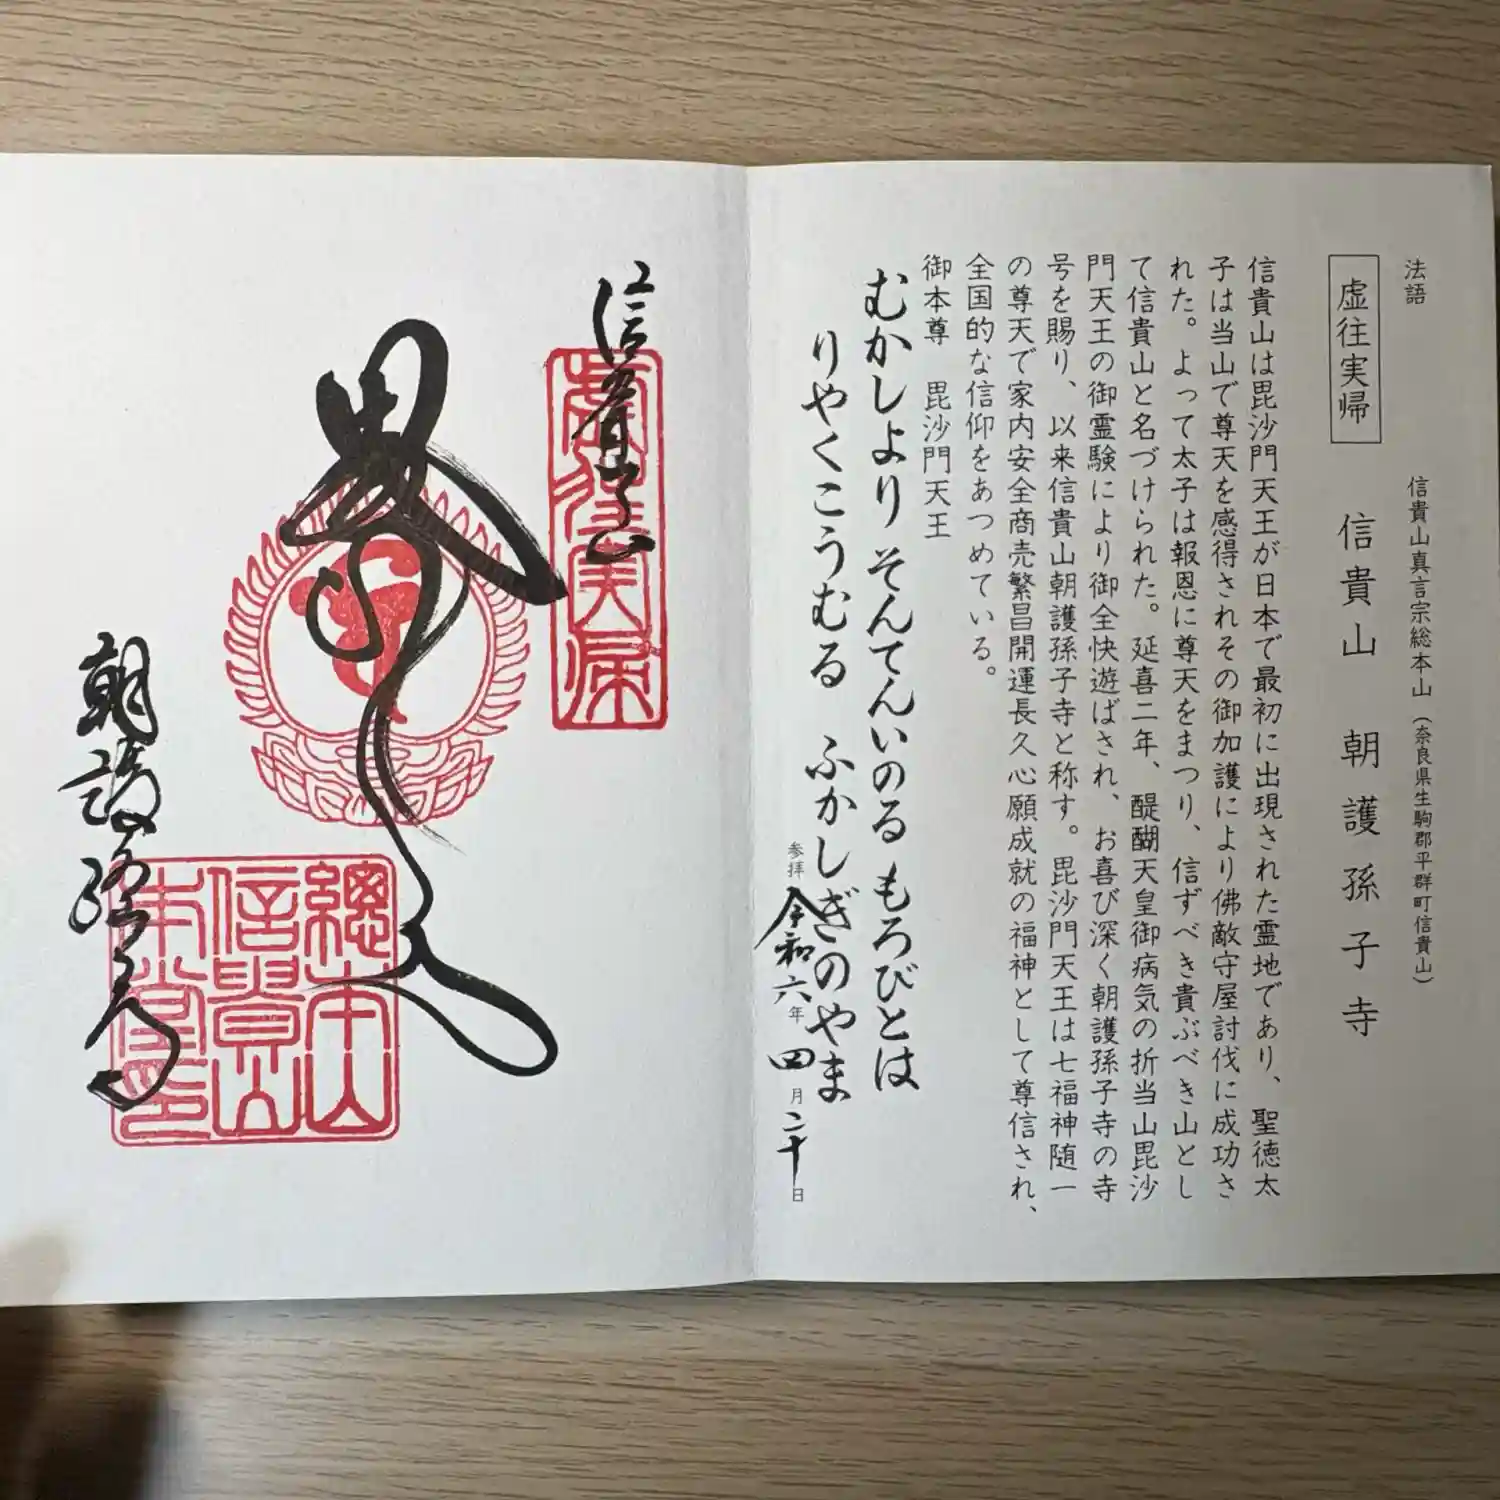 法語
信貴山真言宗総本山（奈良県生駒郡平群町信貴山）
虚往実帰
信貴山 朝護孫子寺
信貴山は毘沙門天王が日本で最初に出現された霊地であり、聖徳太
子は当山で尊天を感得されその御加護により佛敵守屋討伐に成功さ
れた。よって太子は報恩に尊天をまつり、信ずべき貴ぶべき山とし
て信貴山と名づけられた。延喜二年、醍醐天皇御病気の折当山毘沙
門天王の御霊験により御全快遊ばされ、お喜び深く朝護孫子寺の寺
号を賜り、以来信貴山朝護孫子寺と称す。毘沙門天王は七福神随一
の尊天で家内安全商売繁昌開運長久心願成就の福神として尊信され、
全国的な信仰をあつめている。
御本尊 毘沙門天王
むかしより そんてんいのる もろびとは
りやくこうむる ふかしぎのやま
参拝 令和六年四月二十日
信貴山
虚往実帰
朝護孫子寺
總本山
信貴山
本堂印